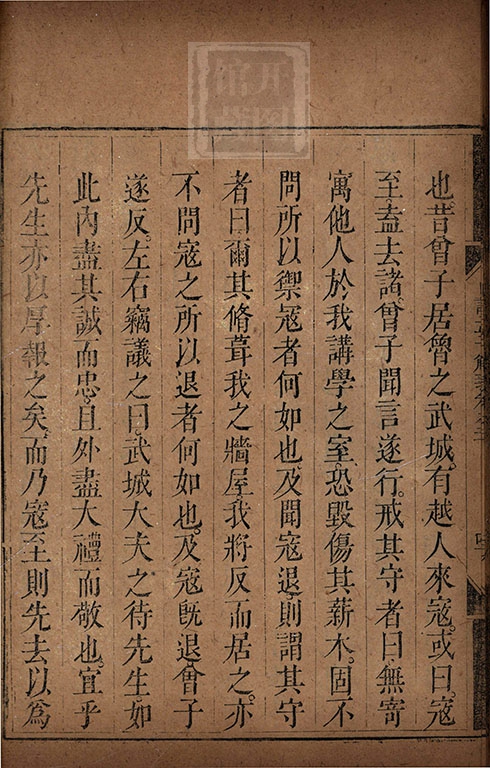 也昔曾子居魯之武城有越人來寇或曰寇
至盍去諸曾子聞言遂行戒其守者曰無寄
寓他人於我講學之室恐毀傷其薪木固不
問所以禦寇者何如也及聞寇退則謂其守
者曰爾其脩葺我之牆屋我將反而居之亦
不問寇之所以退者何如也及寇既退曾子
遂反左右竊議之曰武城大夫之待先生如
此內盡其誠而忠且外盡大禮而敬也宜乎
先生亦以厚報之矣而乃寇至則先去以為